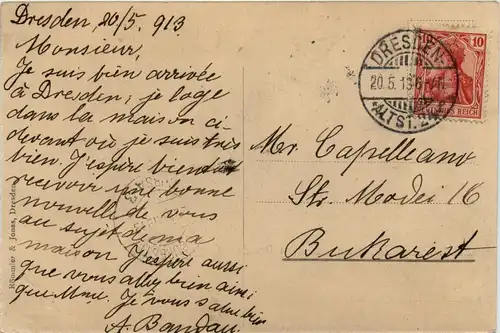 Dresden, 20/5. 913
Monsieur,
Je suis bien arrivée
à Dresden; je loge
dans la maison ci-
devant où je suis très
bien. J'espère bientôt
recevoir une bonne
nouvelle de vous
au sujet de ma
maison. J'espère aussi
que vous allez bien ainsi
que Mme. Je vous salue bien
A. Bandau
Mr. Capelleano
Str. Modei 16
Bukarest
DRESDEN-
20.5.13
ALTST. 24
10
REICH
Römmler & Jonas, Dresden